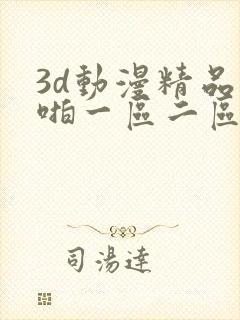 3d動漫精品
啪一區二區
司湯達